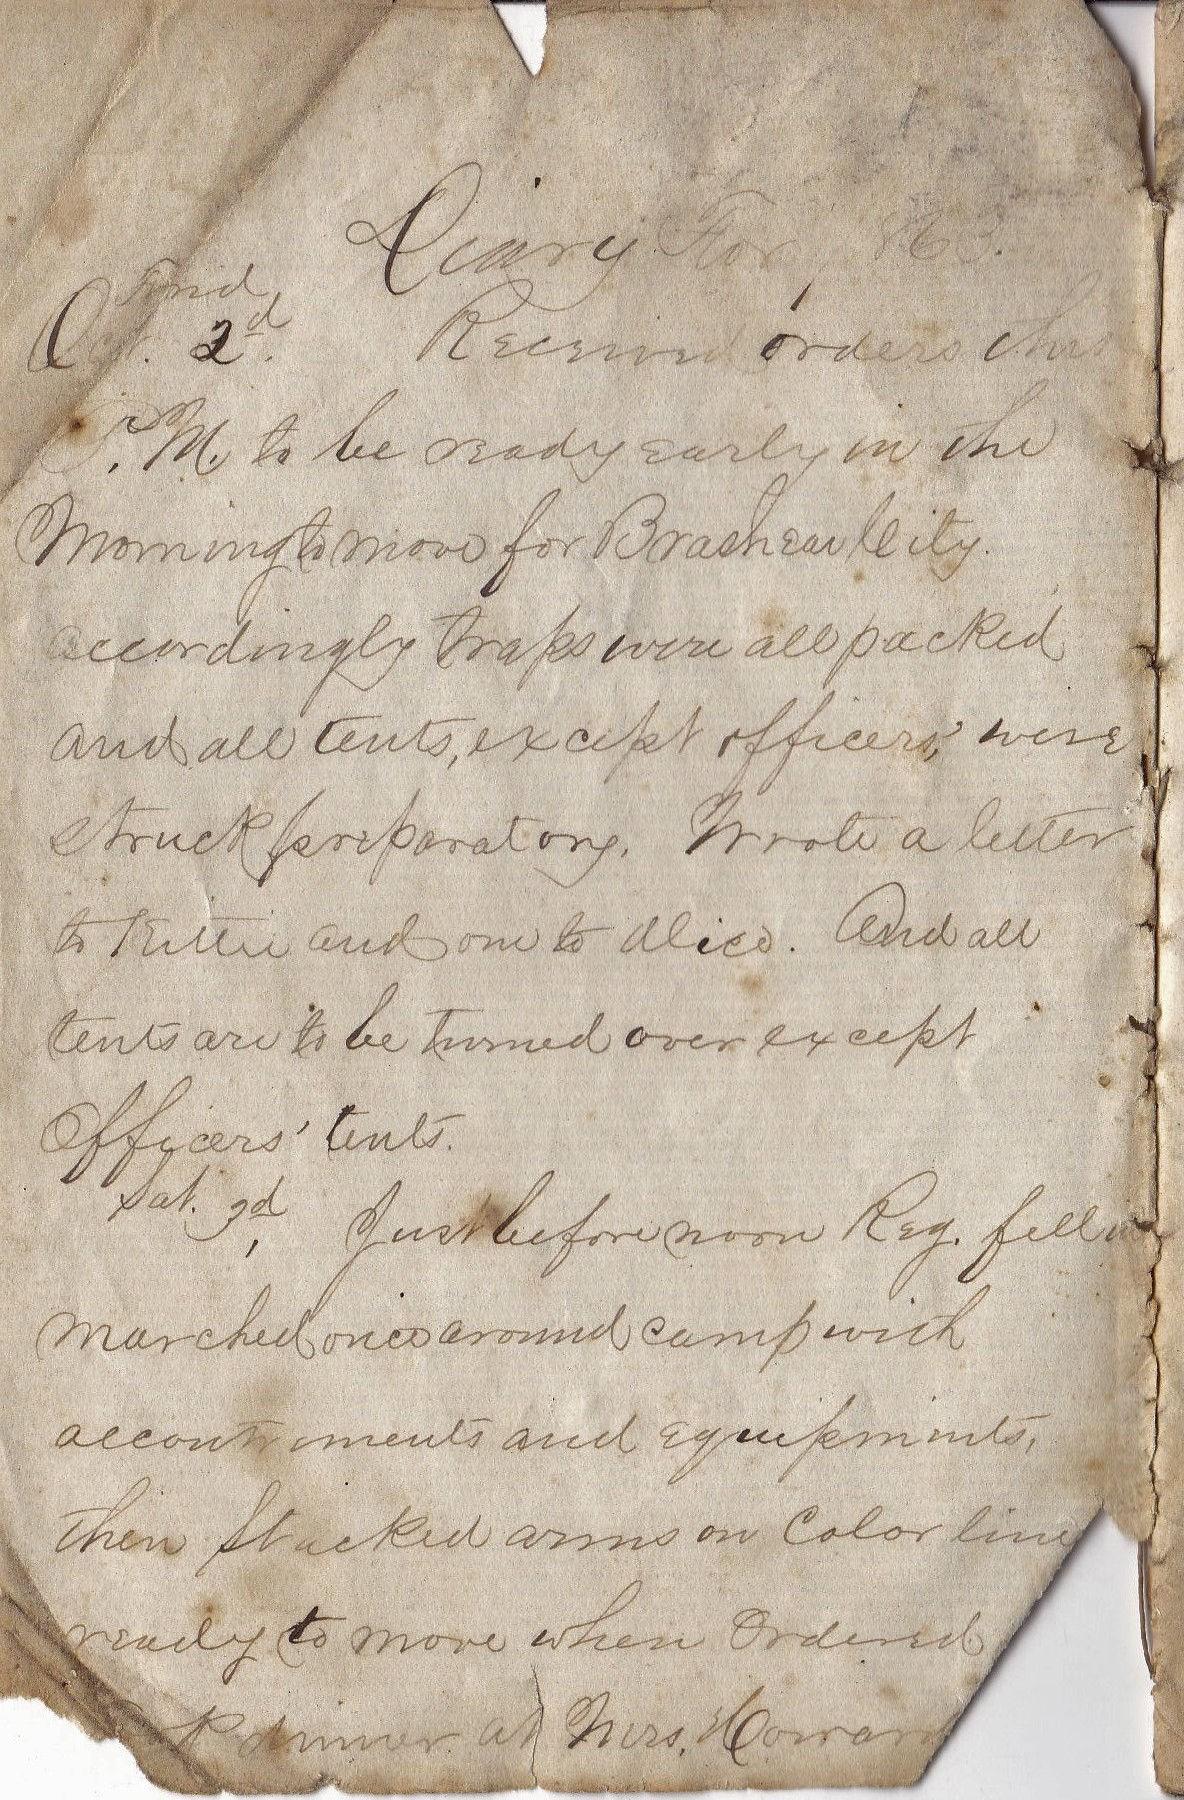 Diary For 1863.
Frid,
Oct. 2d. Received orders this
P.M. to be ready early in the
Morning to move for Brashear City.
accordingly traps were all packed
and all tents, except officers', were
struck preparatory. Wrote a letter
to Kittie and one to Alice. And all
tents are to be turned over except
Officers' tents.
Sat. 3d, Just before noon Reg. fell in
marched once around camp with
accoutrements and equipments,
then stacked arms on Color line
ready to move when Ordered
dinner at Mrs. Howard